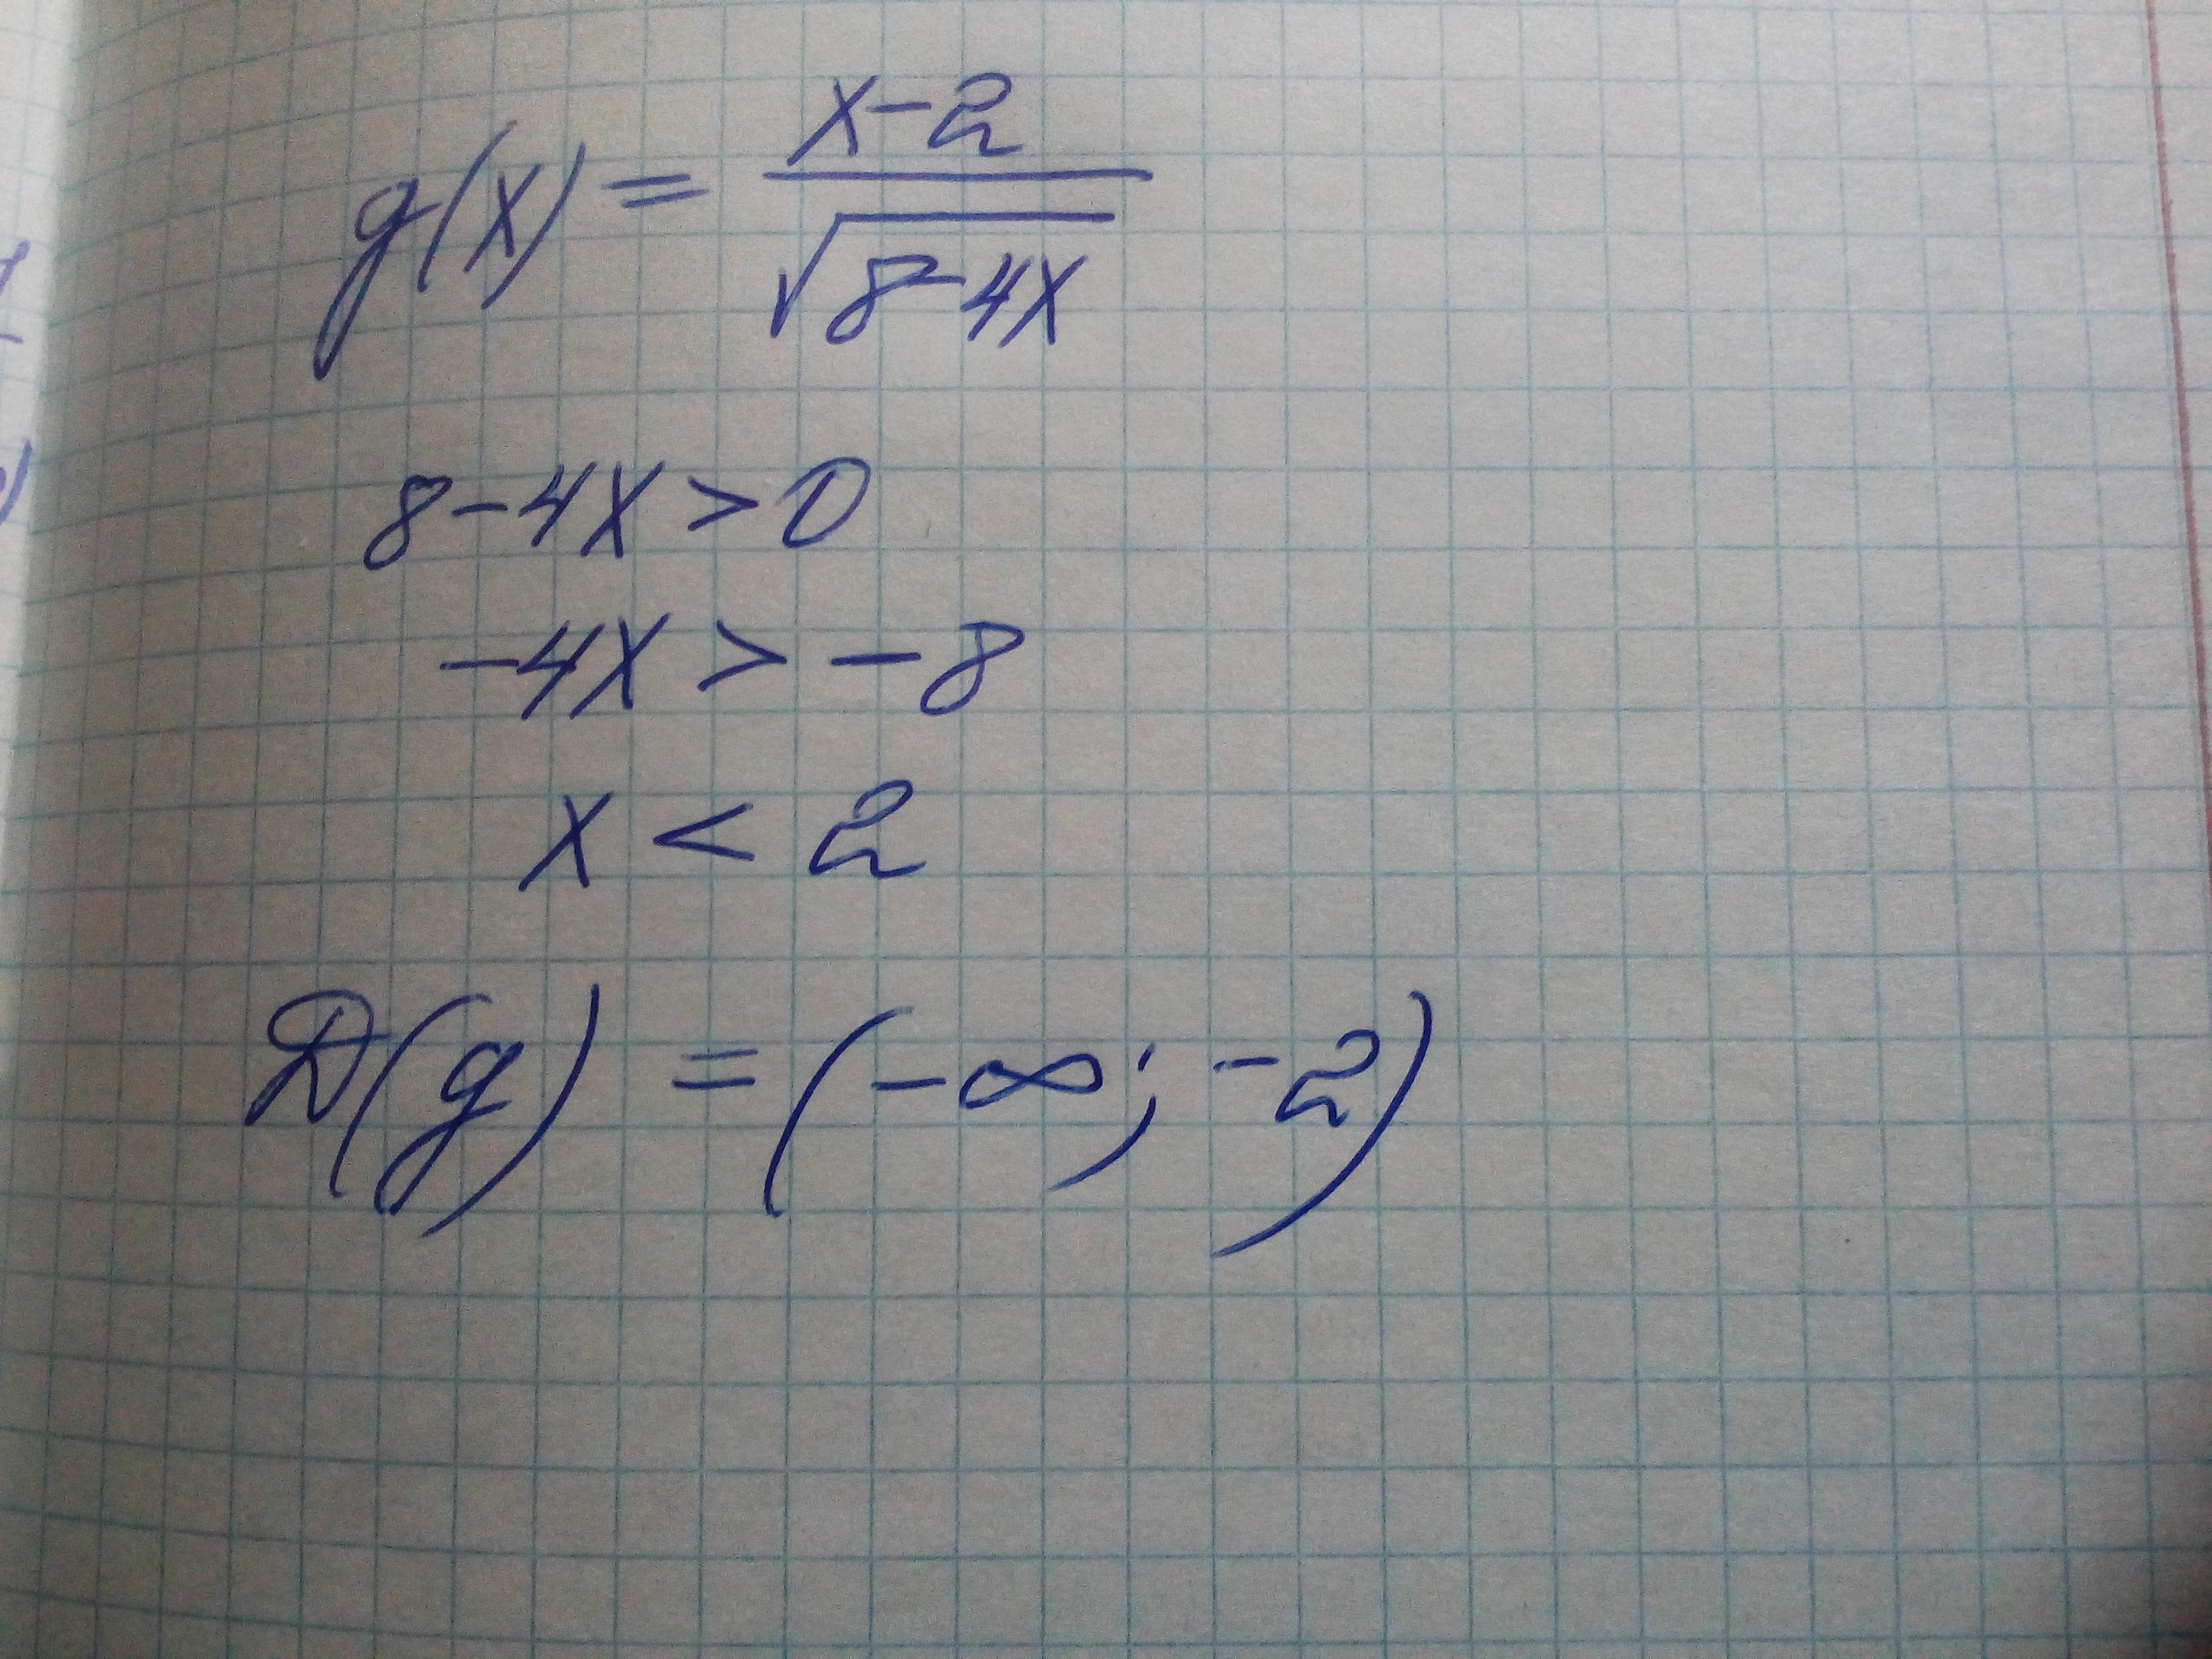 g(x) = (x-2)/√(8-4x)
8-4x>0
-4x > -8
x < 2
D(g) = (-∞; -2)